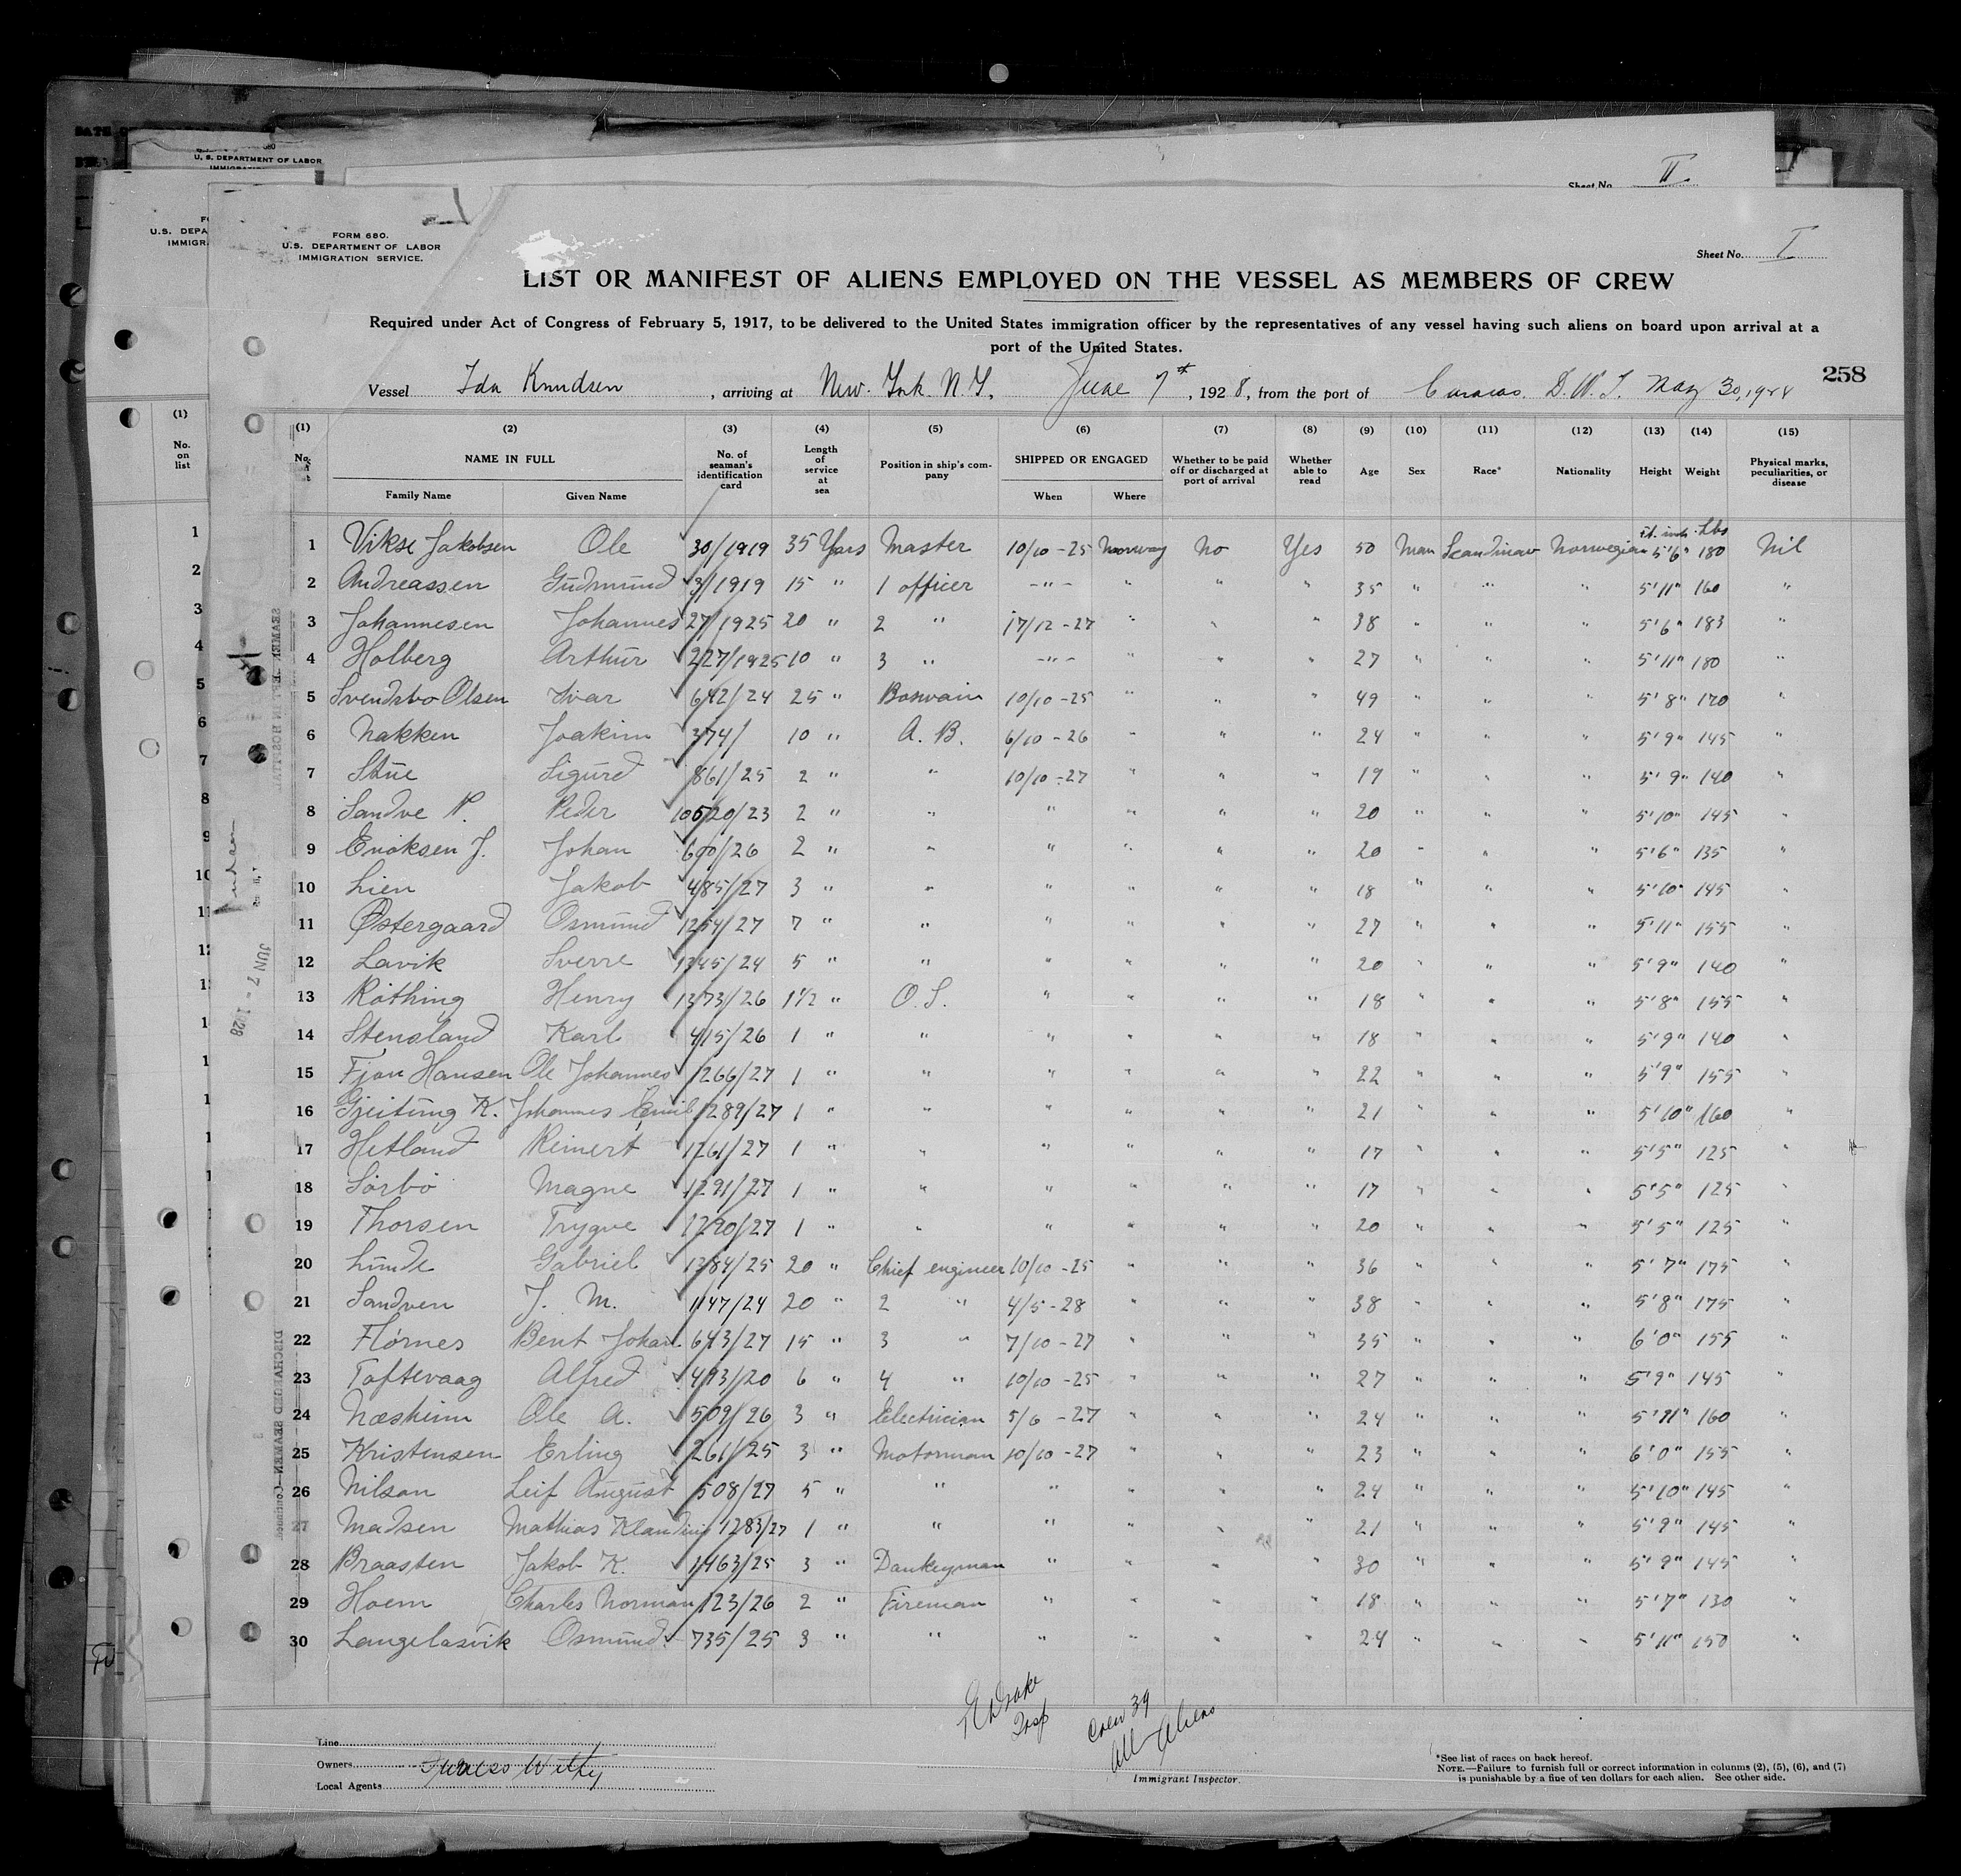 Sheet No. II
U. S. DEPARTMENT OF LABOR
FORM 680.
U. S. DEPARTMENT OF LABOR
IMMIGRATION SERVICE.
Sheet No. I
LIST OR MANIFEST OF ALIENS EMPLOYED ON THE VESSEL AS MEMBERS OF CREW
Required under Act of Congress of February 5, 1917, to be delivered to the United States immigration officer by the representatives of any vessel having such aliens on board upon arrival at a
port of the United States.
258
Vessel Ida Knudsen, arriving at New York. N.Y. June 7th, 1928, from the port of Curacao. D.W.I. May 30, 1928
(1) (2) (3) (4) (5) (6) (7) (8) (9) (10) (11) (12) (13) (14) (15)
No. NAME IN FULL Family Name Given Name No. of seaman's identification card Length of service at sea Position in ship's company SHIPPED OR ENGAGED When Where Whether to be paid off or discharged at port of arrival Whether able to read Age Sex Race* Nationality Height Weight Physical marks, peculiarities, or disease
1 Vikse Jakobsen Ole 30/1919 35 Years Master 10/10-25 Norway No Yes 50 Man Scandinav Norwegian 5'6" 180 Nil
2 Andreassen Gudmund 3/1919 15 " 1 officer -"- " " " 35 " " " 5'11" 160 "
3 Johannesen Johannes 27/1925 20 " 2 " 17/12-27 " " " 38 " " " 5'6" 183 "
4 Holberg Arthur 227/1925 10 " 3 " -"- " " " 27 " " " 5'11" 180 "
5 Svendsbo Olsen Ivar 642/24 25 " Boswain 10/10-25 " " " 49 " " " 5'8" 170 "
6 Nakken Joakim 374/ 10 " A. B. 6/10-26 " " " 24 " " " 5'9" 145 "
7 Stue Sigurd 861/25 2 " " 10/10-27 " " " 19 " " " 5'9" 140 "
8 Sandve P. Peder 10520/23 2 " " " " " " 20 " " " 5'10" 145 "
9 Eriksen J. Johan 600/26 2 " " " " " " 20 " " " 5'6" 135 "
10 Lien Jakob 485/27 3 " " " " " " 18 " " " 5'10" 145 "
11 Østergaard Osmund 1254/27 7 " " " " " " 27 " " " 5'11" 155 "
12 Lavik Sverre 1345/24 5 " " " " " " 20 " " " 5'9" 140 "
13 Röthing Henry 1373/26 1 1/2 " O. S. " " " " 18 " " " 5'8" 155 "
14 Stensland Karl 415/26 1 " " " " " " 18 " " " 5'9" 140 "
15 Fjon Hansen Ole Johannes 1266/27 1 " " " " " " 22 " " " 5'9" 155 "
16 Gjeitung K. Johannes Emil 1289/27 1 " " " " " " 21 " " " 5'10" 160 "
17 Hetland Reinert 1261/27 1 " " " " " " 17 " " " 5'5" 125 "
18 Sörbö Magne 1291/27 1 " " " " " " 17 " " " 5'5" 125 "
19 Thorsen Trygve 1290/27 1 " " " " " " 20 " " " 5'5" 125 "
20 Lunde Gabriel 1384/25 20 " Chief engineer 10/10-25 " " " 36 " " " 5'7" 175 "
21 Sandven J. M. 1147/24 20 " 2 " 4/5-28 " " " 38 " " " 5'8" 175 "
22 Flörnes Bent Johan. 643/27 15 " 3 " 7/10-27 " " " 35 " " " 6'0" 155 "
23 Toftevaag Alfred 493/20 6 " 4 " 10/10-25 " " " 27 " " " 5'9" 145 "
24 Næsheim Ole A. 509/26 3 " Electrician 5/6-27 " " " 24 " " " 5'11" 160 "
25 Kristensen Erling 261/25 3 " Motorman 10/10-27 " " " 23 " " " 6'0" 155 "
26 Nilsen Leif August 508/27 5 " " " " " " 24 " " " 5'10" 145 "
27 Madsen Mathias Klaudius 1283/27 1 " " " " " " 21 " " " 5'9" 145 "
28 Braasten Jakob K. 1463/25 3 " Dankeyman " " " " 30 " " " 5'9" 145 "
29 Hoem Charles Norman 123/26 2 " Fireman " " " " 18 " " " 5'7" 130 "
30 Langelasvik Osmund. 735/25 3 " " " " " " 24 " " " 5'11" 150 "
JUN 7 - 1928
Insp
Crew 39
All Aliens
Line
Owners
Local Agents Furness Withy
Immigrant Inspector.
*See list of races on back hereof.
NOTE.—Failure to furnish full or correct information in columns (2), (5), (6), and (7)
is punishable by a fine of ten dollars for each alien. See other side.